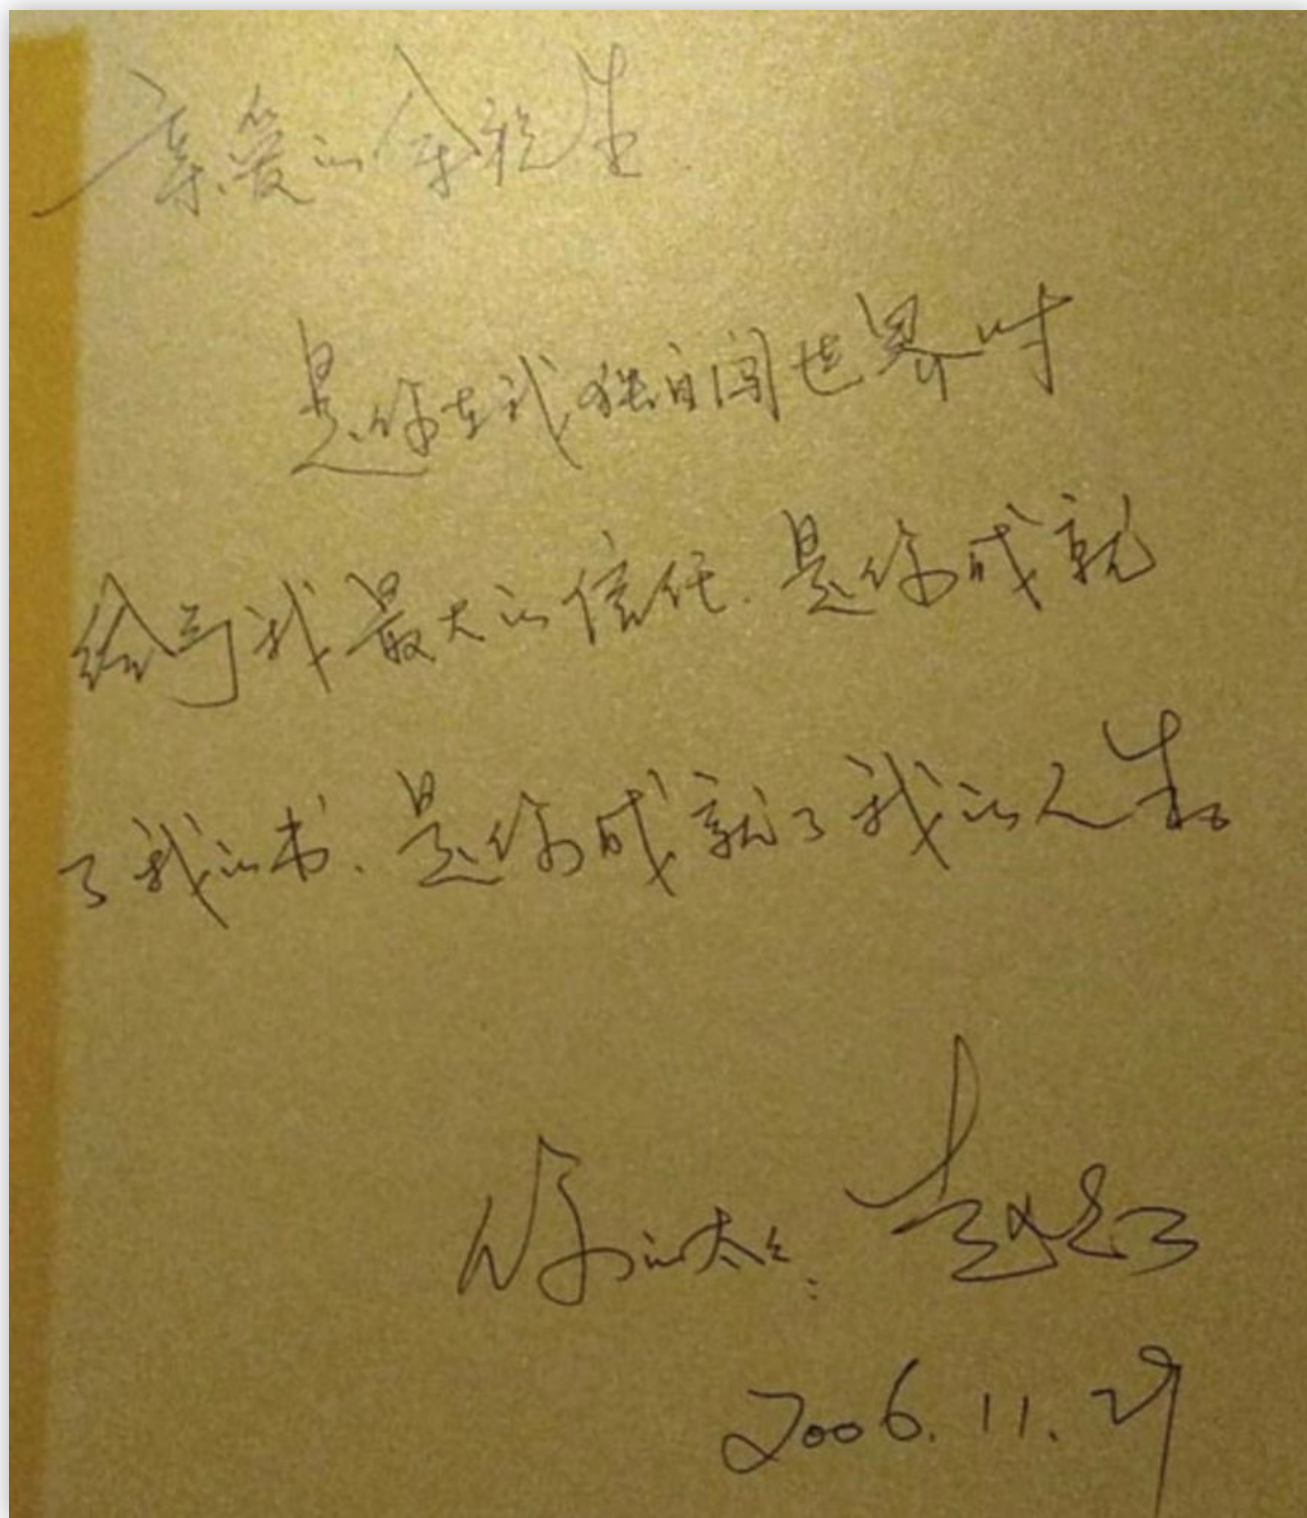 亲爱的余祝生
是你在我独自闯世界时
给予我最大的信任.是你成就
了我的书、是你成就了我的人生
你的太太:
2006.11.29